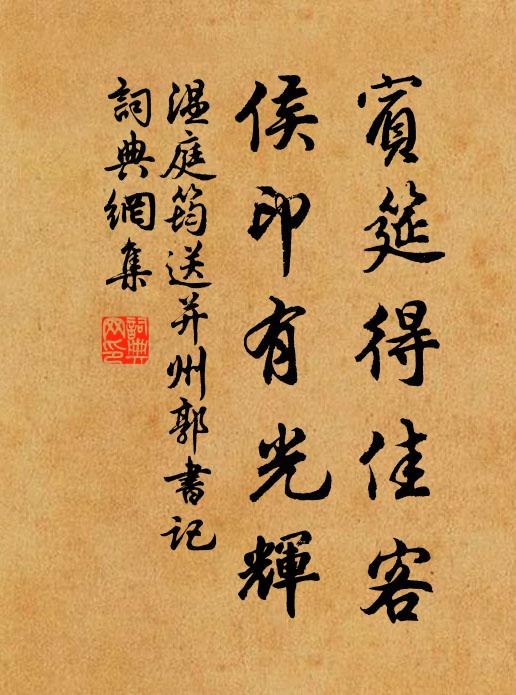 賓筵得佳客
侯印有光輝
溫庭筠送并州郭書記
詞典網集
詞典網印